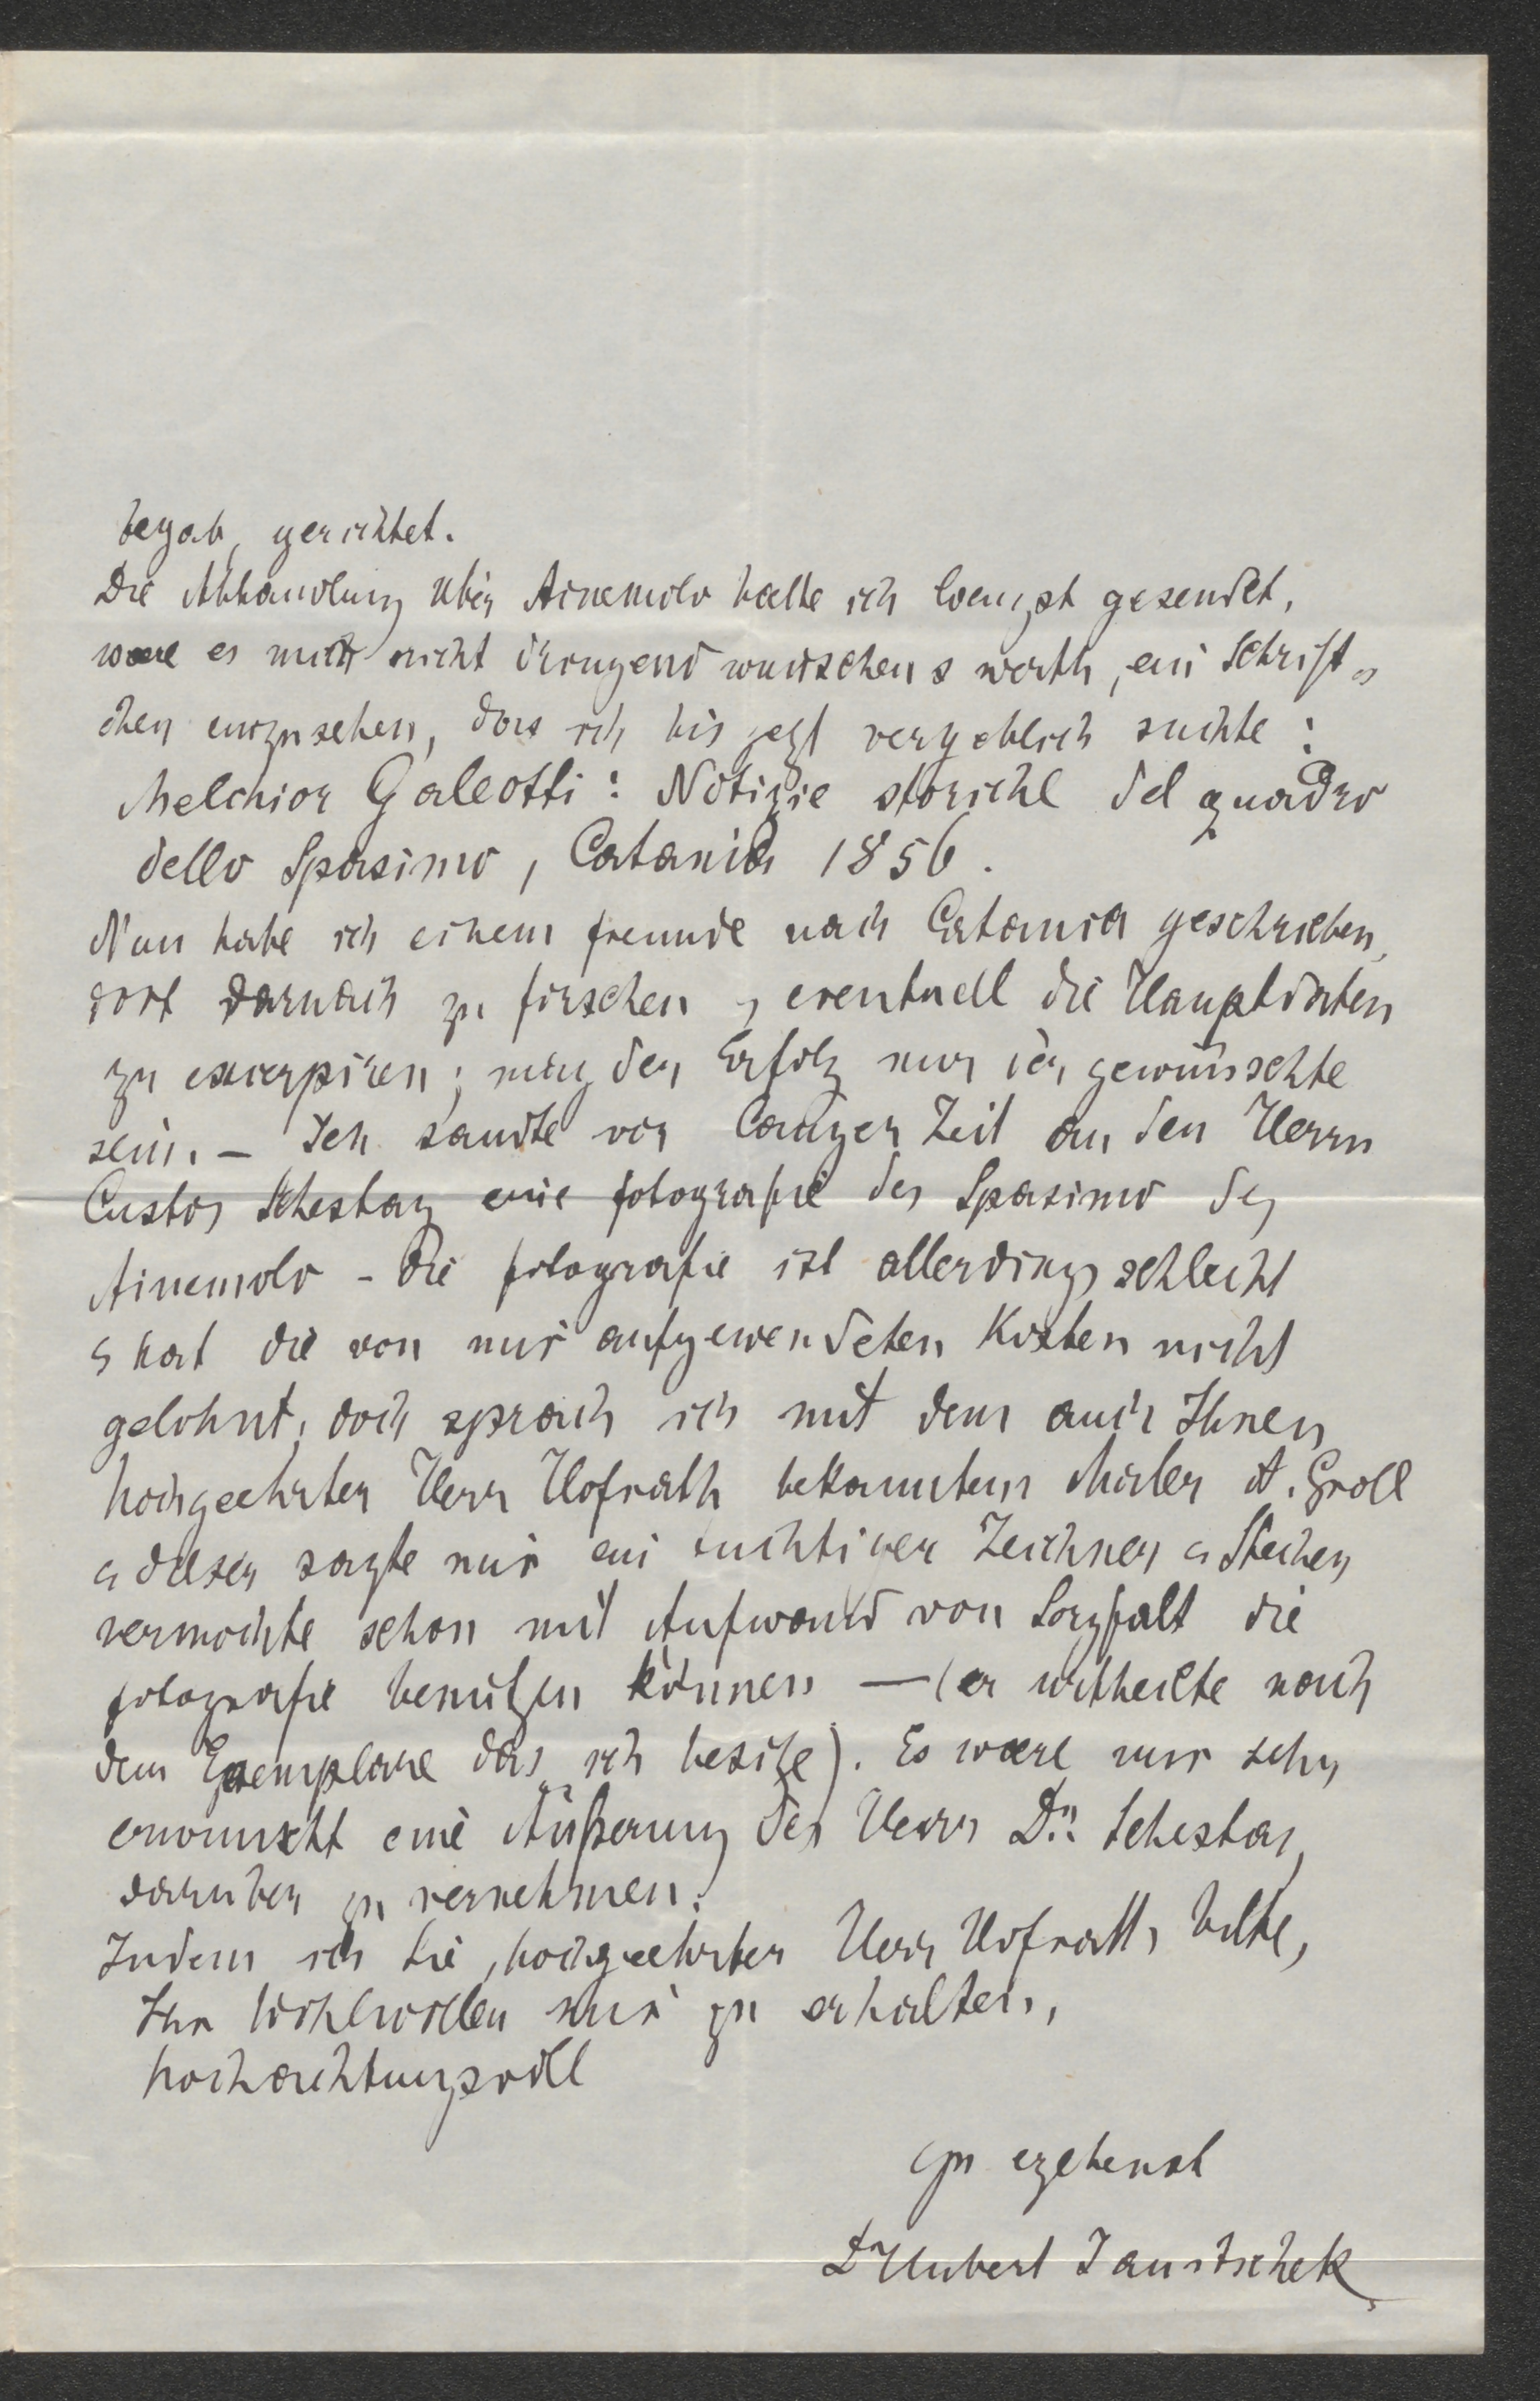 begab, gerichtet.
Die Abhandlung über Ainemolo hätte ich laengst gesendet,
waere es mir nicht dringend wünschenswerth, ein Schrift=
chen einzusehen, das ich bis jetzt vergeblich suchte:
Melchior Galeotti: Notizie storiche del quadro
dello Spasimo, Catania 1856.
Nun habe ich einem Freunde nach Catania geschrieben,
dort darnach zu forschen u eventuell die Hauptdaten
zu excerpiren; mag der Erfolg nur der gewünschte
sein. – Ich sandte vor langer Zeit an den Herrn
Custos Schestag eine Fotografie des Spasimo des
Ainemolo – Die Fotografie ist allerdings schlecht
u hat die von mir aufgewendeten Kosten nicht
gelohnt; doch sprach ich mit dem auch Ihnen
hochgeehrter Herr Hofrath bekannten Maler A. Groll
u dieser sagte mir ein tüchtiger Zeichner u Stecher
vermöchte schon mit Aufwand von Sorgfalt die
Fotografie benützen können — (er urtheilte nach
dem Exemplare das ich besitze). Es waere mir sehr
erwünscht eine Äußerung des Herrn Dr. Schestag
darüber zu vernehmen.
Indem ich Sie, hochgeehrter Herr Hofrath, bitte,
Ihr Wohlwollen mir zu erhalten,
hochachtungsvoll
ergebenst
Dr Hubert Janitschek